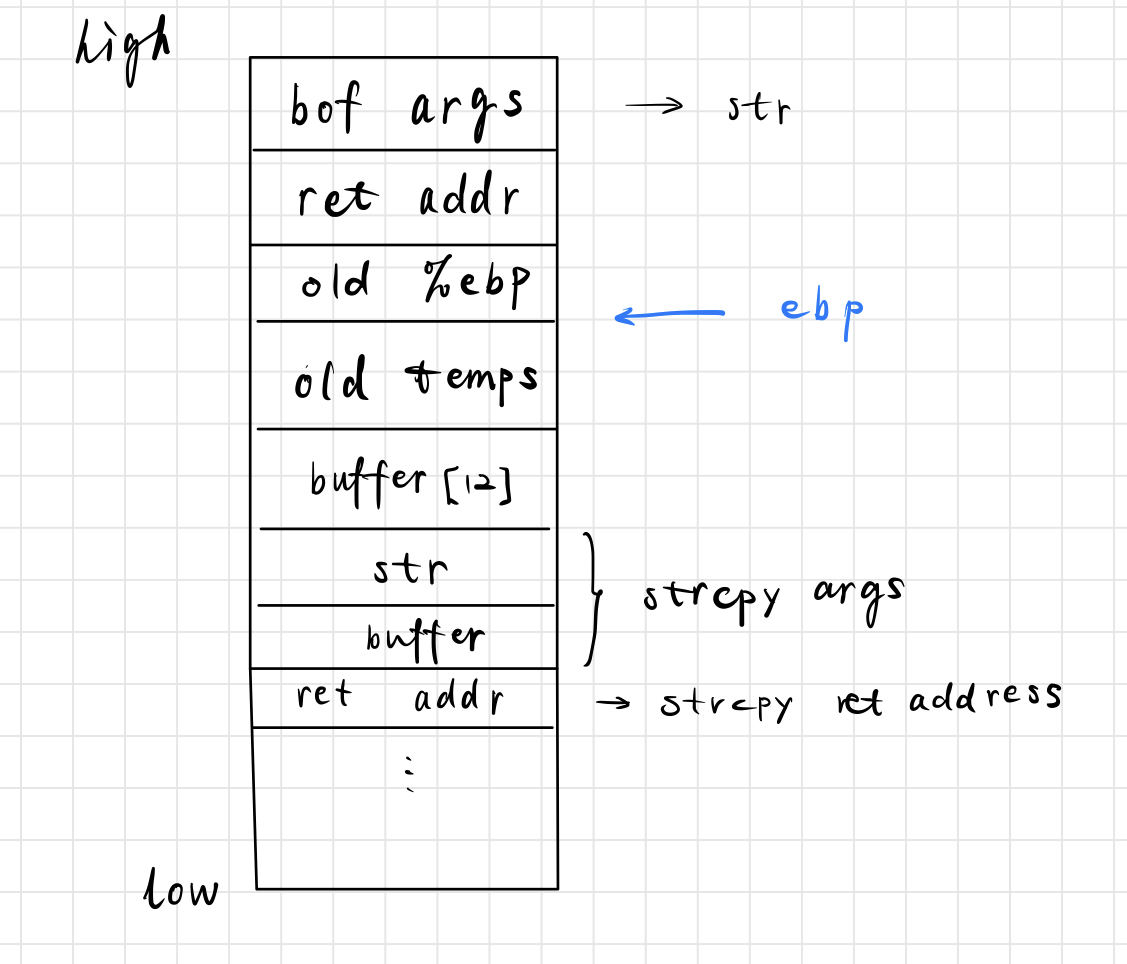 high
bof args → str
ret addr
old %ebp
← ebp
old temps
buffer [12]
str
strcpy args
buffer
ret addr → strcpy ret address
⋮
low